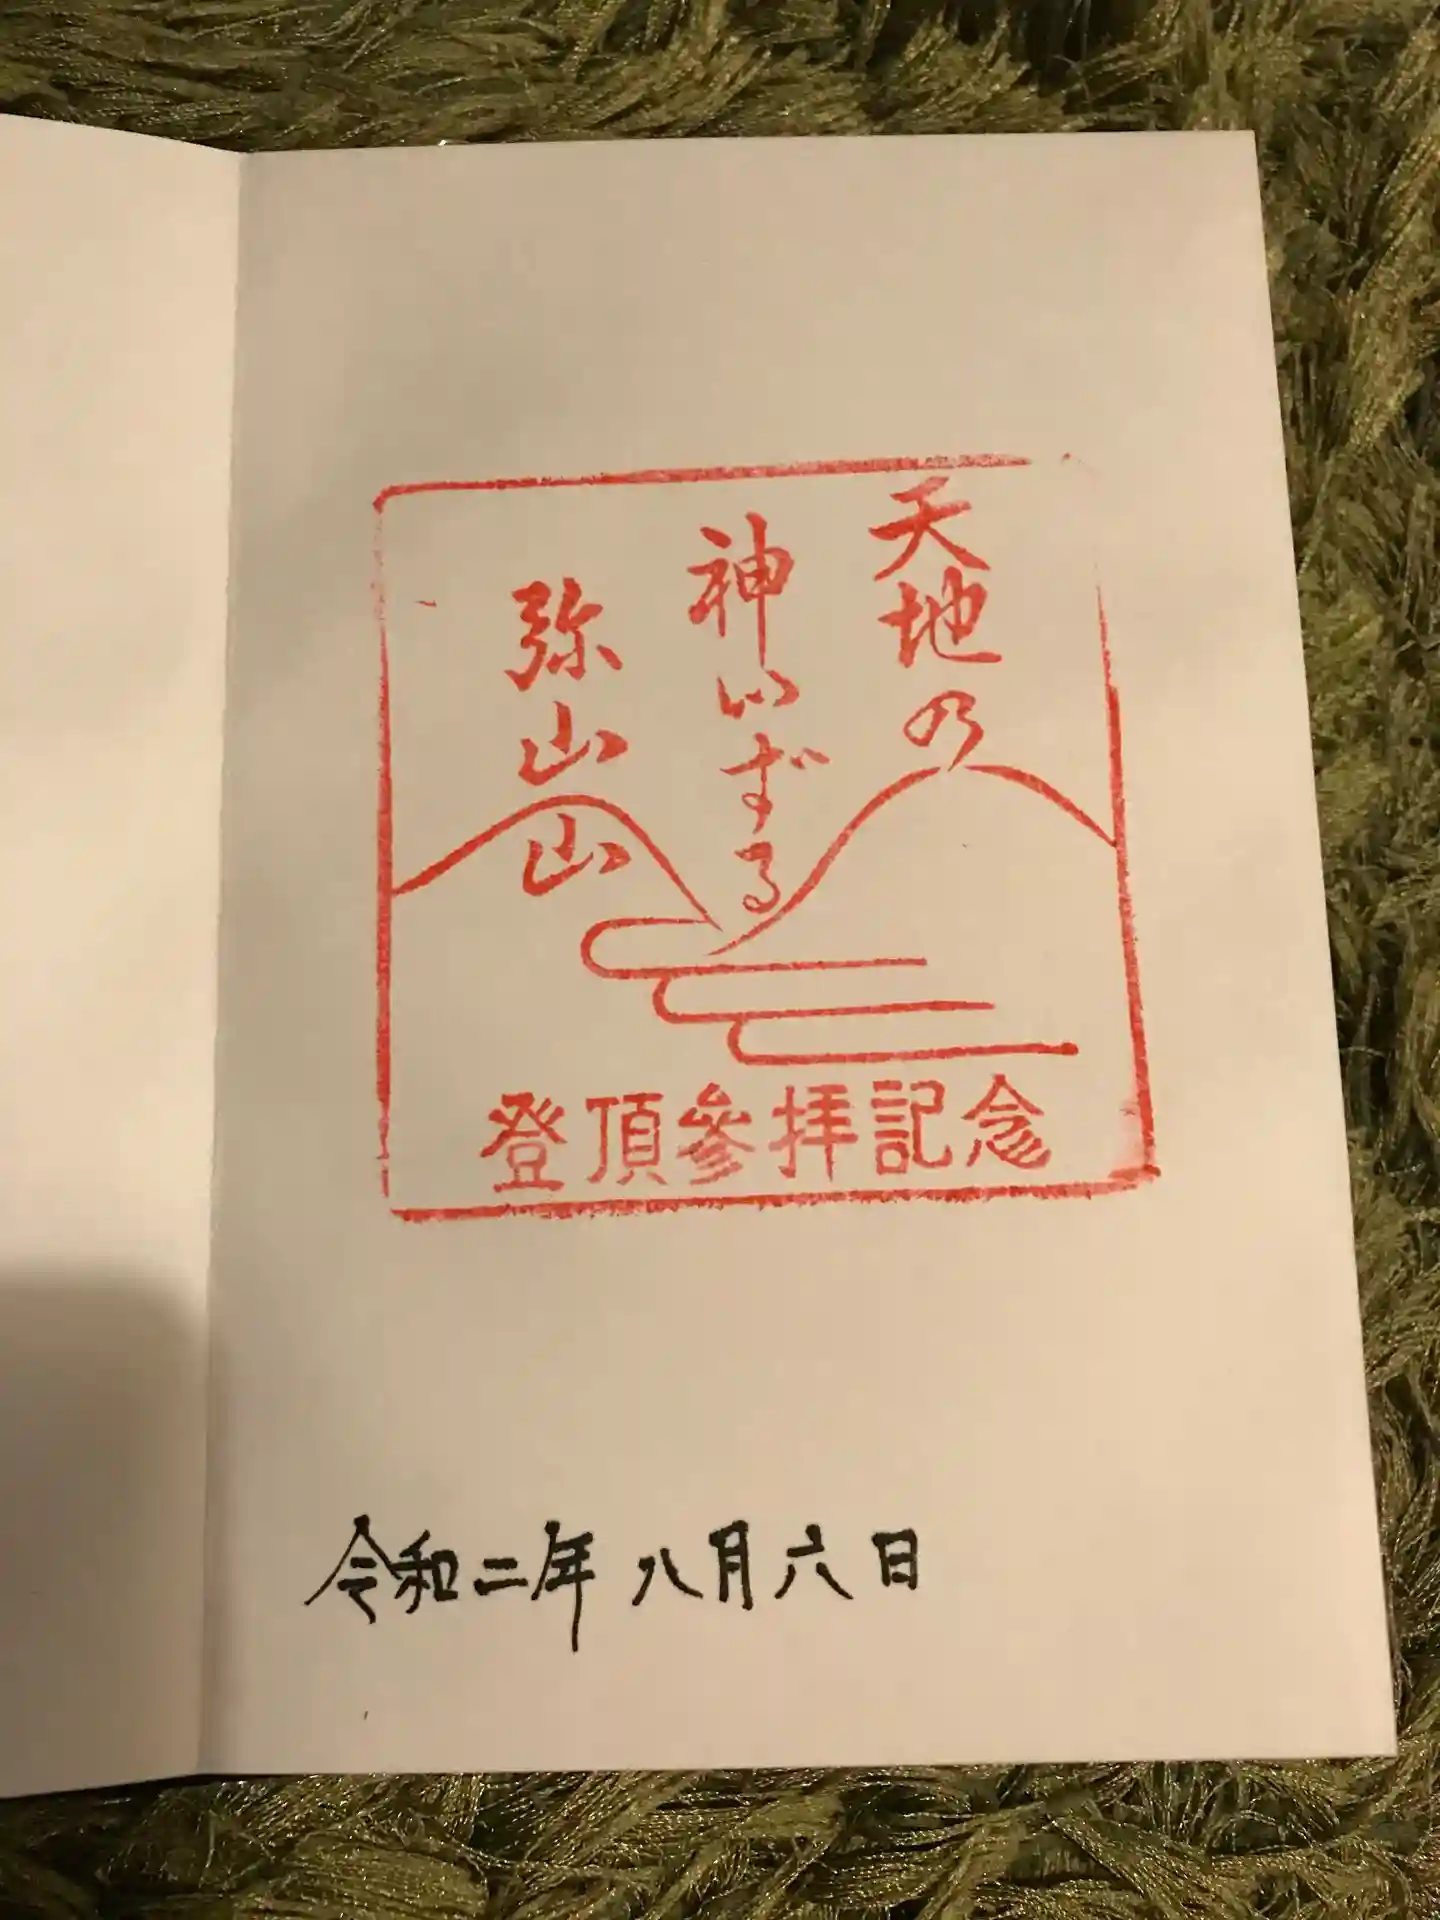 天地乃
神いずる
弥山山
登頂參拝記念
令和二年 八月六日